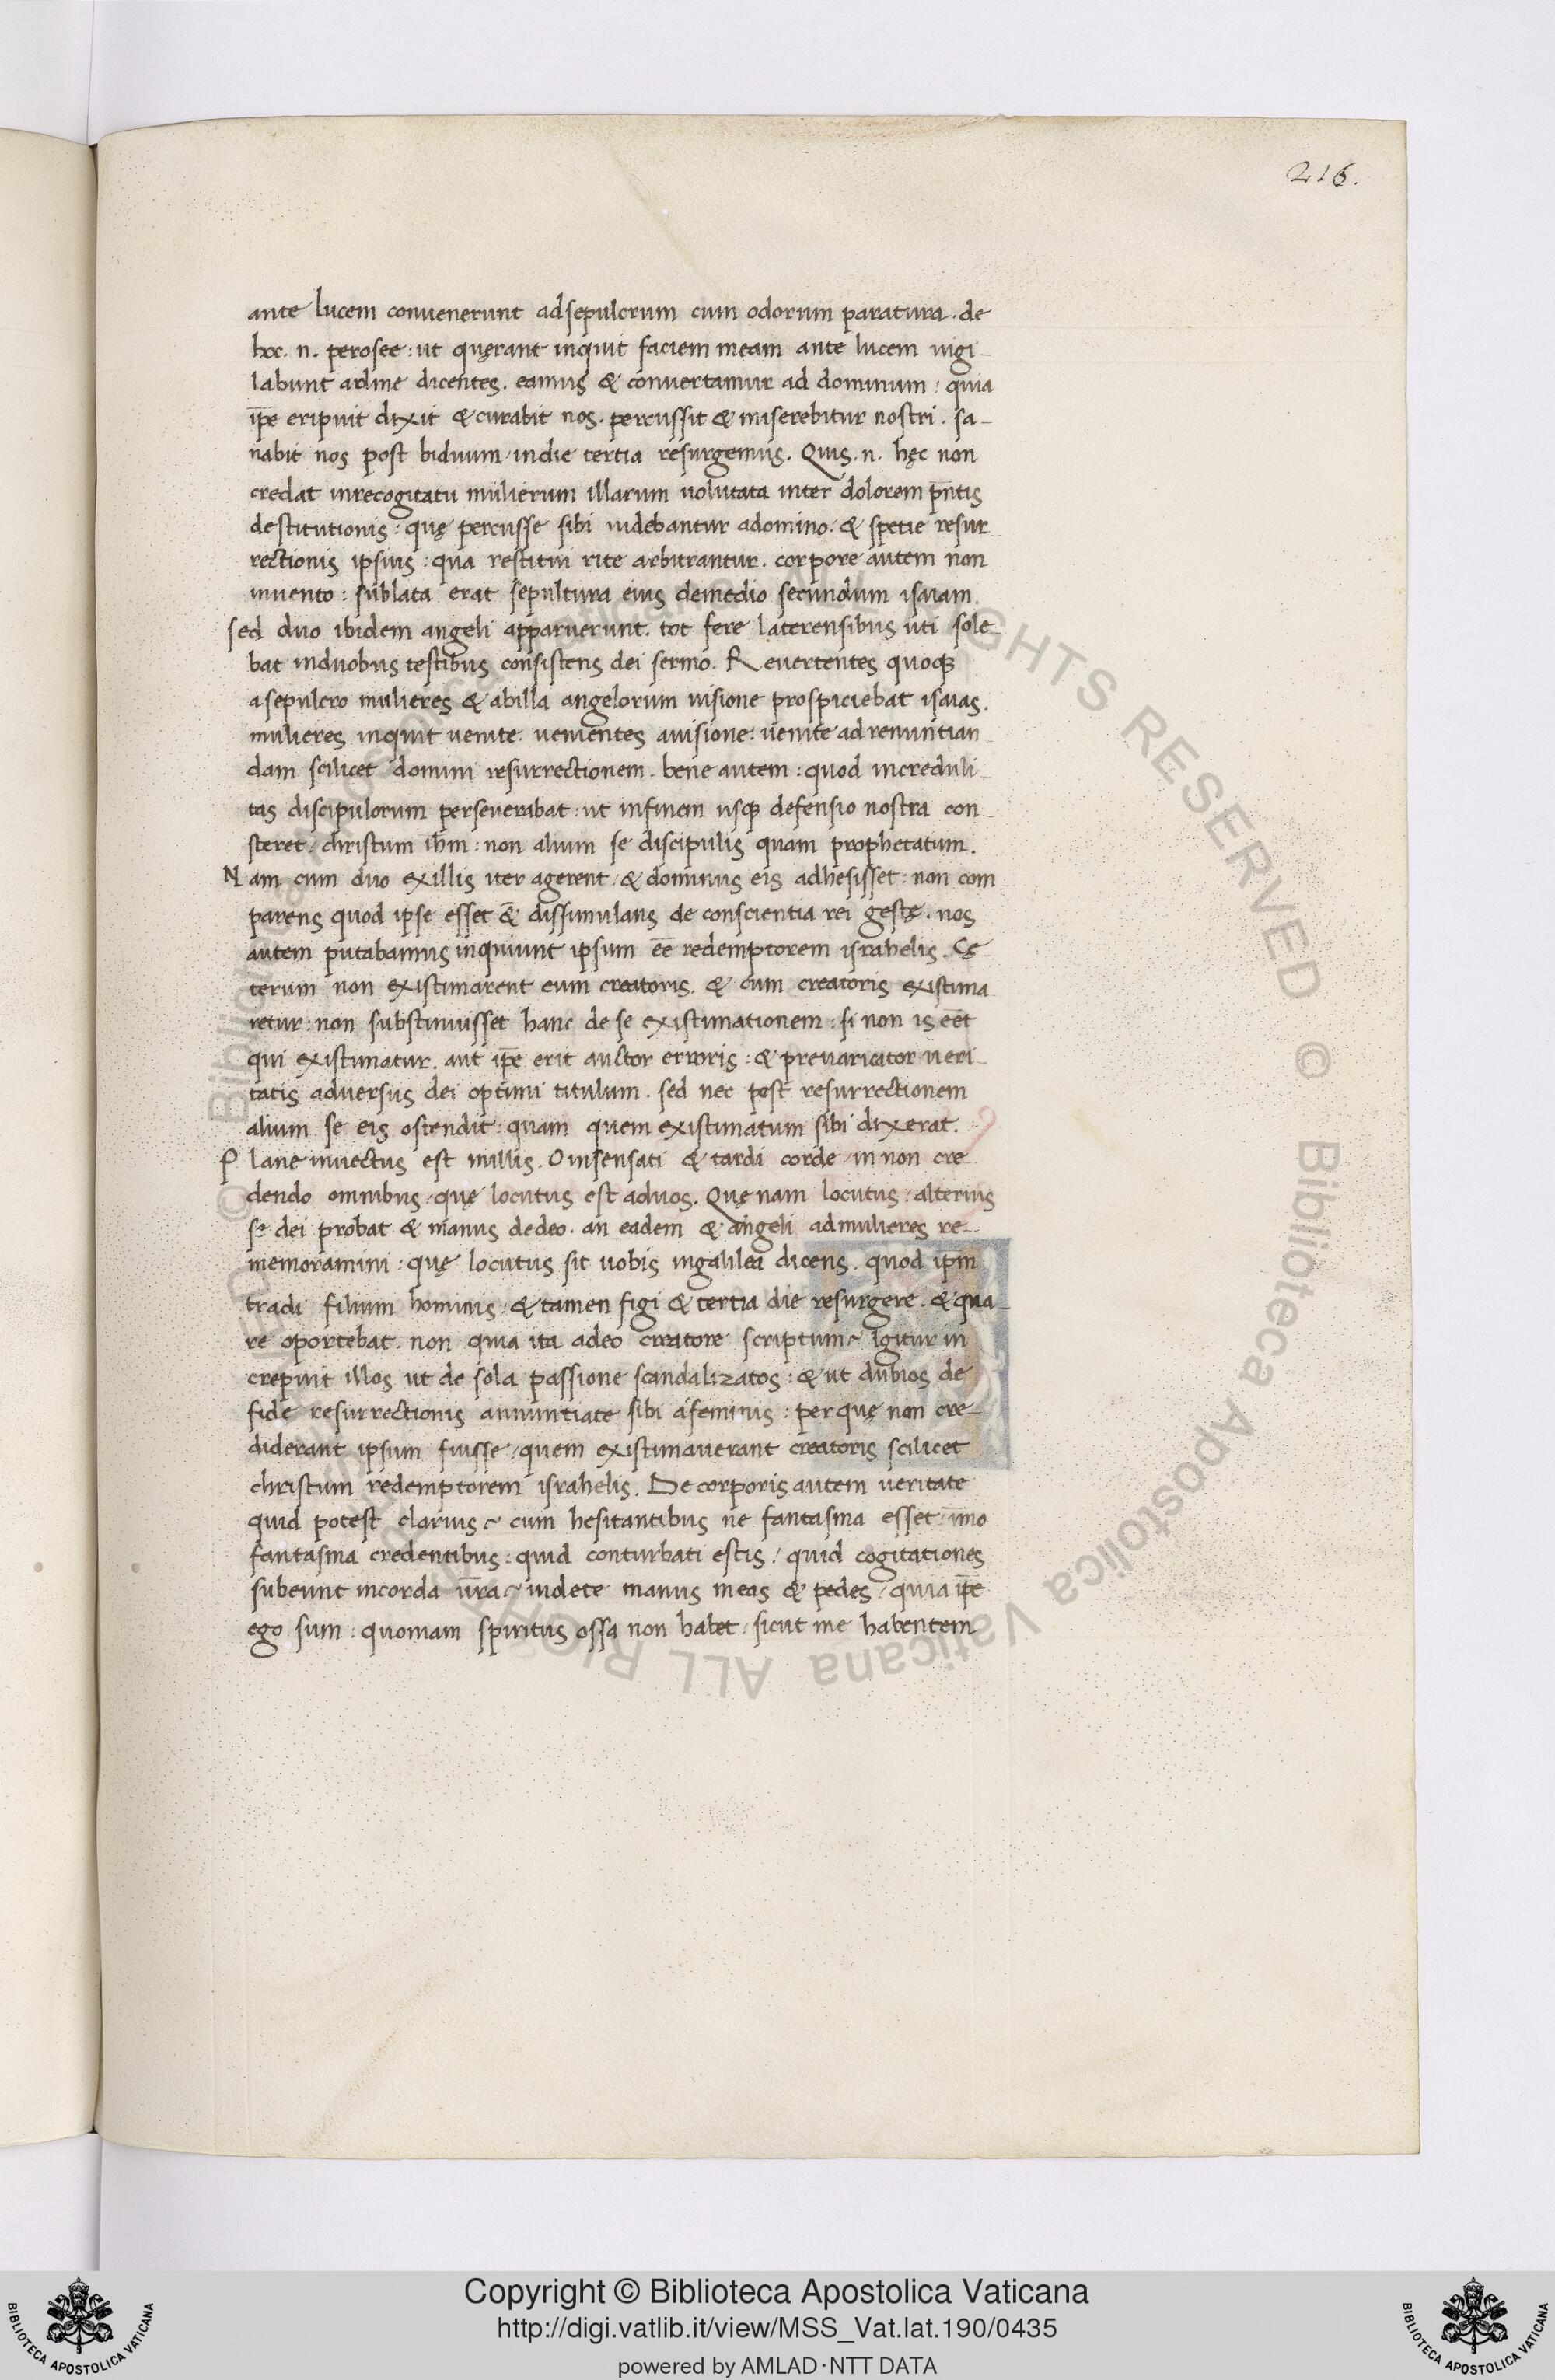 216.
ante lucem convenerunt adsepulcrum cum odorum paratura. de
hoc. n. perosee: ut quęrant inquit faciem meam ante lucem uigi-
labunt adme dicentes. eamus & convertamur ad dominum: quia
ip̄e eripuit dixit & curabit nos. percussit & miserebitur nostri. sa-
nabit nos post biduum indie tertia resurgemus. Quis. n. hęc non
credat inrecogitatu mulierum illarum uolutata inter dolorem p̄ntis
destitutionis: quę percusse sibi uidebantur adomino. & spetie resur
rectionis ipsius: qua restitui rite arbitrantur. corpore autem non
invento: sublata erat sepultura eius demedio secundum isaiam.
sed duo ibidem angeli apparuerunt. tot fere laterensibus uti sole-
bat induobus testibus consistens dei sermo. Revertentes quoq3
asepulcro mulieres & abilla angelorum uisione prospiciebat isaias.
mulieres inquit uenite. uenientes auisione: uenite ad renuntian
dam scilicet domini resurrectionem. bene autem: quod increduli-
tas discipulorum perseverabat: ut infinem usq3 defensio nostra con-
steret. christum ih̄m: non alium se discipulis quam prophetatum.
Nam cum duo exillis iter agerent & dominus eis adhesisset: non com
parens quod ipse esset & dissimulans de conscientia rei gestę. nos
autem putabamus inquiunt ipsum eē redemptorem israhelis. Cę
terum non existimarent eum creatoris. & cum creatoris existima
retur: non substinuisset hanc de se existimationem: si non is eēt
qui existimatur. aut ip̄e erit auctor erroris: & prevaricator ueri-
tatis adversus dei optimi titulum. sed nec post resurrectionem
alium se eis ostendit: quam quem existimatum sibi dixerat.
Plane invectus est inillis. O insensati & tardi corde in non cre
dendo omnibus quę locutus est aduos. Quę nam locutus alterius
se dei probat & manus dedeo. an eadem & angeli admulieres re-
memoramini: quę locutus sit uobis ingalilea dicens. quod ip̄m
tradi filium hominis: & tamen figi & tertia die resurgere. & qua-
re oportebat. non quia ita adeo creatore scriptum? Igitur in
crepuit illos ut de sola passione scandalizatos: & ut dubios de
fide resurrectionis annuntiate sibi afeminis: per quę non cre-
diderant ipsum fuisse quem existimaverant creatoris scilicet
christum redemptorem israhelis. De corporis autem ueritate
quid potest clarius? cum hesitantibus ne fantasma esset īmo
fantasma credentibus: quid conturbati estis / quid cogitationes
subeunt incorda ūra? uidete manus meas & pedes / quia ip̄e
ego sum: quoniam spiritus ossa non habet sicut me habentem
© Biblioteca Apostolica Vaticana ALL RIGHTS RESERVED
Copyright © Biblioteca Apostolica Vaticana
http://digi.vatlib.it/view/MSS_Vat.lat.190/0435
powered by AMLAD·NTT DATA
BIBLIOTECA APOSTOLICA VATICANA
BIBLIOTECA APOSTOLICA VATICANA